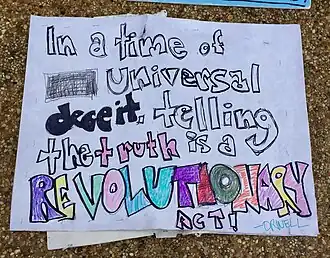 In a time of
universal
deceit, telling
the truth is a
REVOLUTIONARY
ACT!
-ORWELL